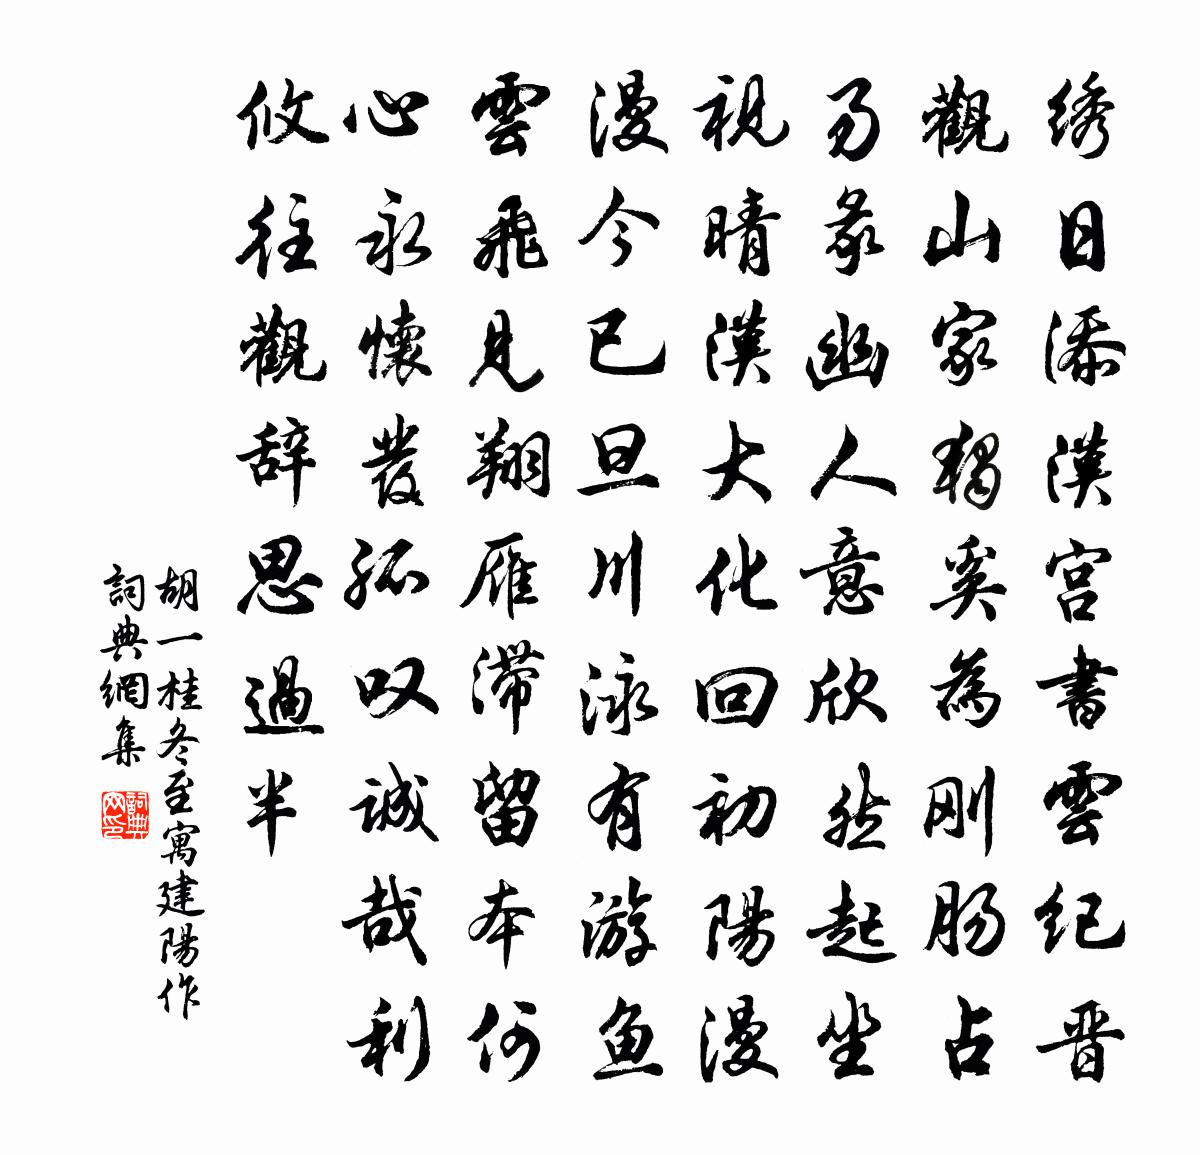 绣日添漢宮書雲紀晋
觀山家独奚為剛腸占
易彖幽人意欣然起坐
視晴漢大化回初陽漫
漫今已旦川泳有游魚
雲飛見翔雁滯留本何
心永懷發孤叹誠哉利
攸往觀辞思過半
胡一桂冬至寓建陽作
詞典網集
詞典